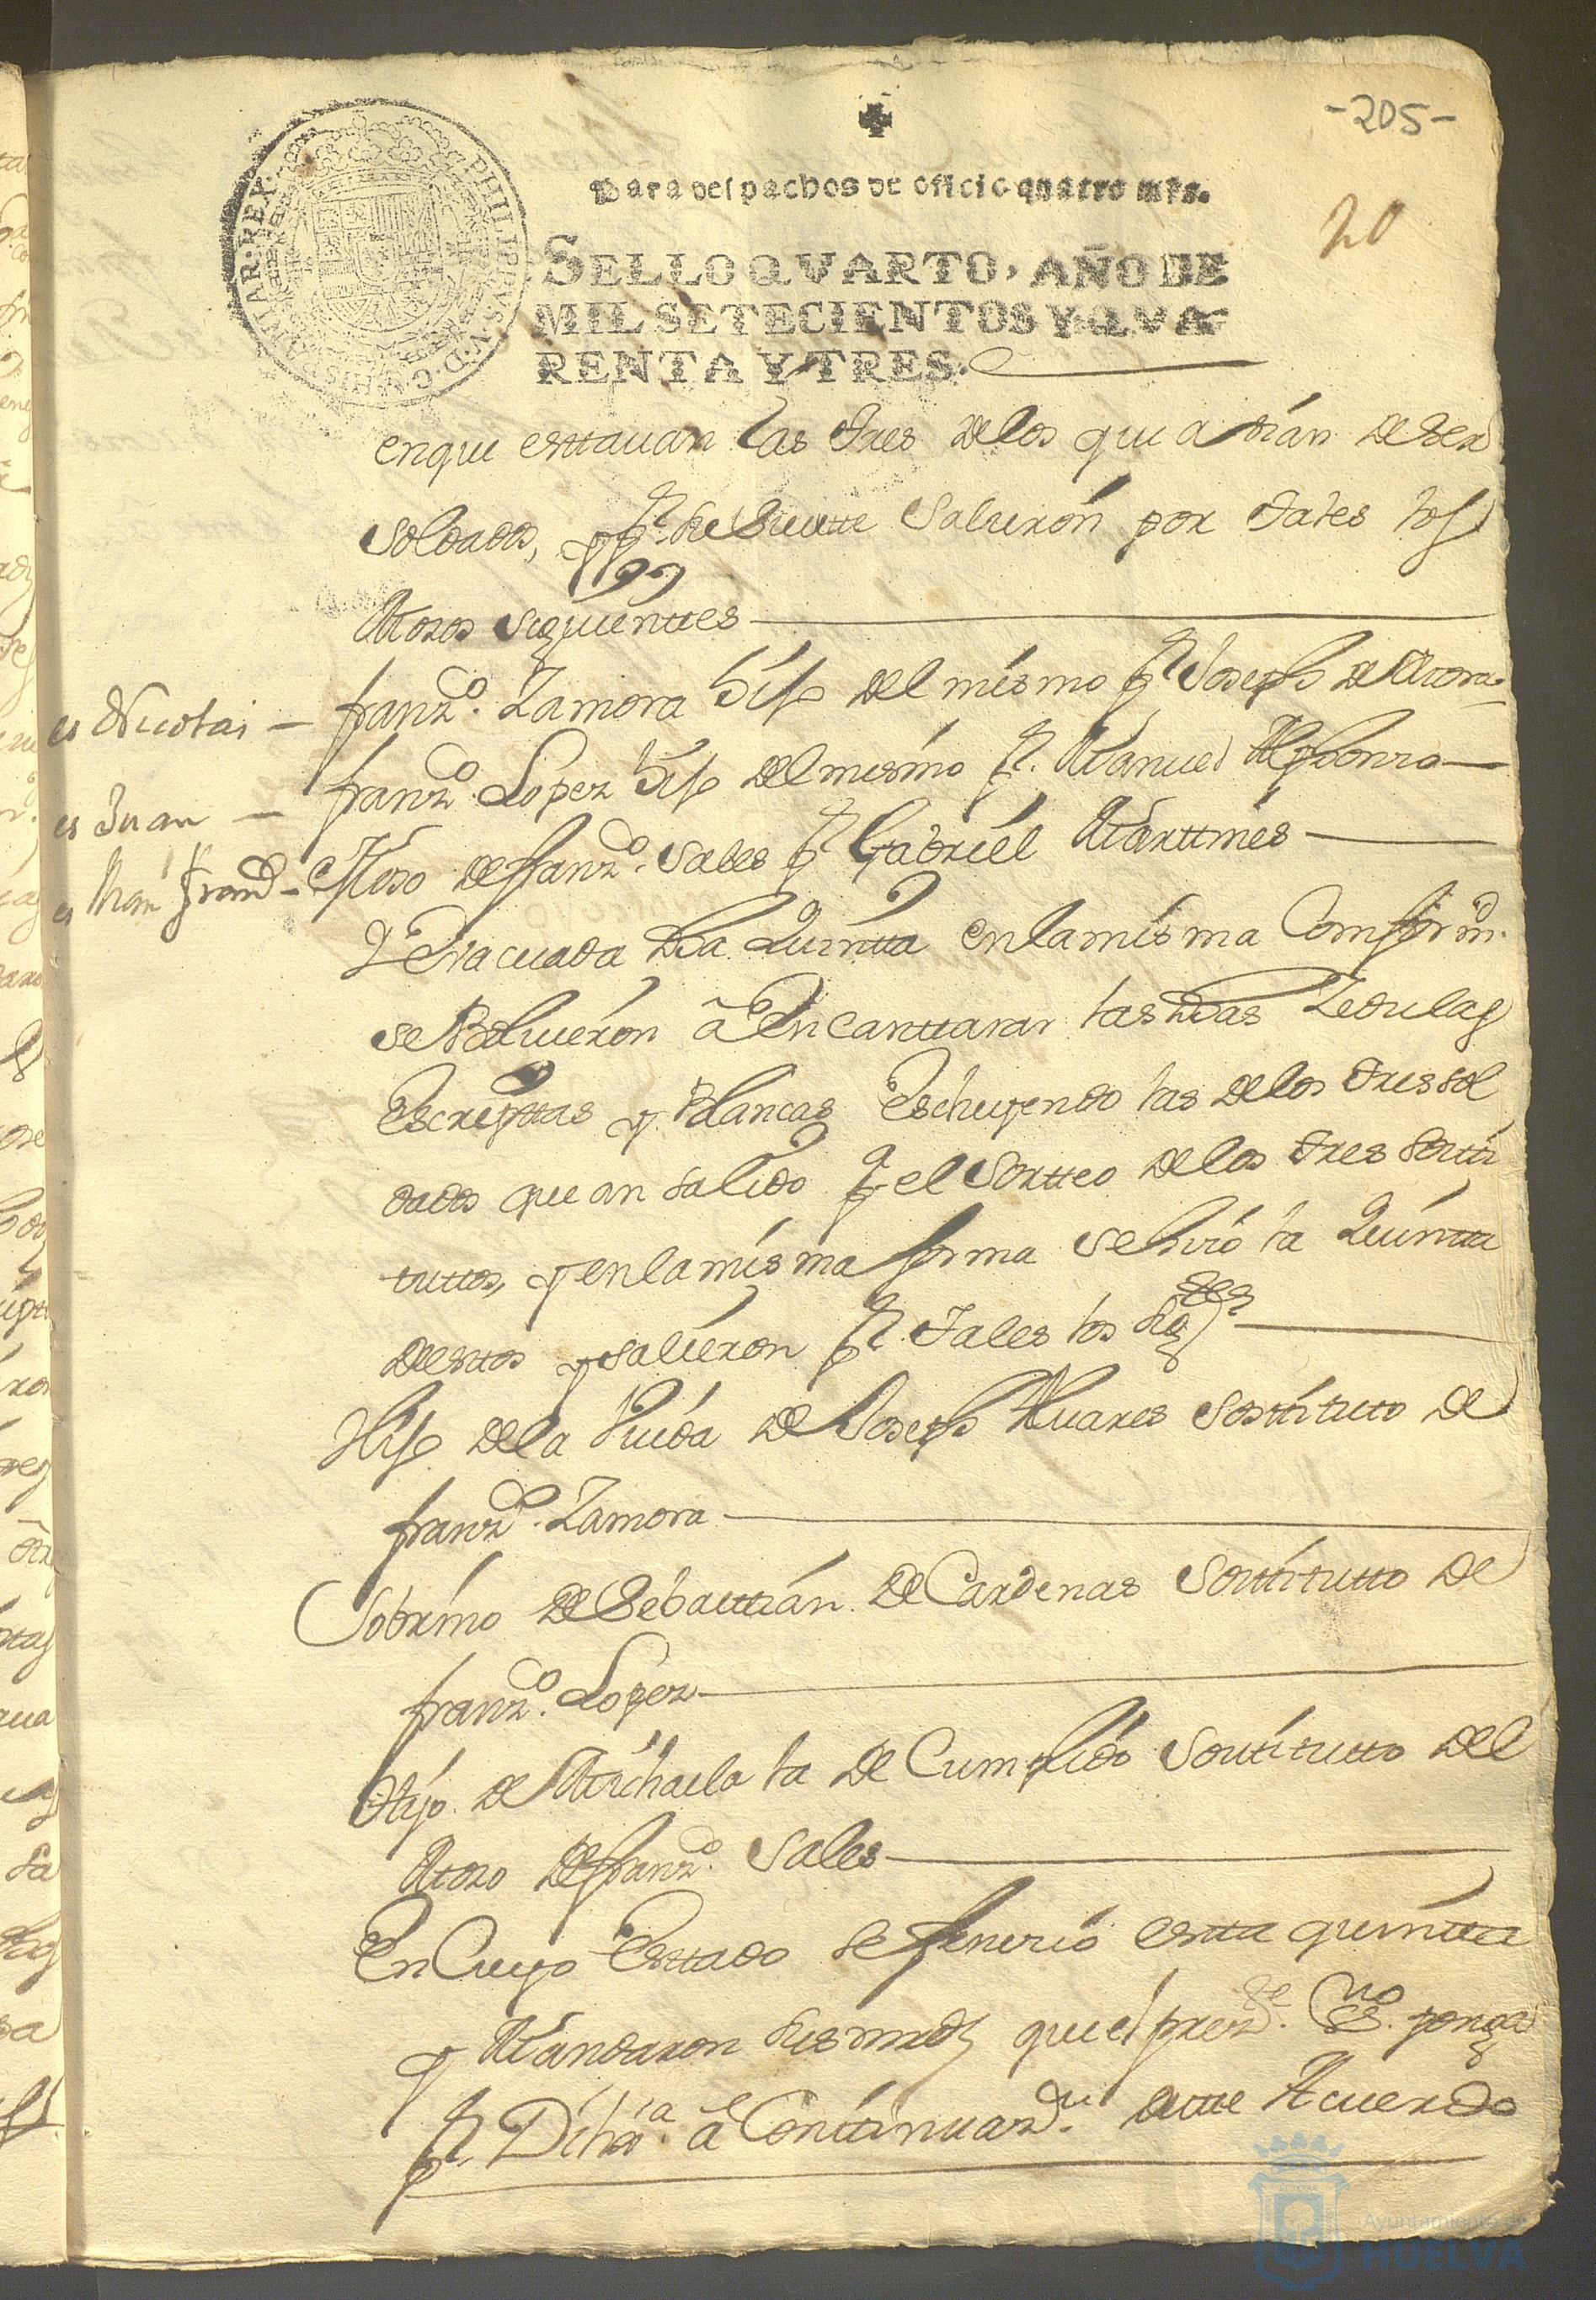 -205-
Para despachos de oficio quatro mrs.
20
SELLO QVARTO, AÑO DE
MIL SETECIENTOS Y QVA
RENTA Y TRES.
PHILIPPVS V D G HISPANIAR REX
enque esttauan las tres delos que auian de ser
soldados, y pr. suertte Salieron por tales los
Mozos siguienttes
es Nicolas - franzco. Zamora hijo del mismo pr Joseph de Mora
es Juan - franzco. Lopez hijo del mismo pr. Manuel Alphonso
es Franco - Mozo de franzco. Sales pr Gabriel Marttines
Y Evacuada dha Quintta enlamisma Comformd.
se Boluieron â Encanttarar las dhas Zedulas
Escripttas y Blancas Escluyendo las delos tres sol
dados que an salido pa el Sortteo delos tres sostti
tuttos, y enlamisma forma se hizo la Quintta
desttos y salieron pr. tales los sigtes
Hijo dela Viuda de Joseph Suares sosttitutto de
franzco. Zamora
Sobrino de Sebasttian de Cardenas Sosttitutto de
franzco. Lopez
Hijo de Michaela la de Cumplido Sosttitutto del
Mozo de franzco. Sales
En Cuyo Esttado se fenecio estta quintta
y Mandaron sus mrds que el prezte. Essno. ponga
pr. Dilixa. â Continuazn. destte Acuerdo
Ayuntamiento de
HUELVA